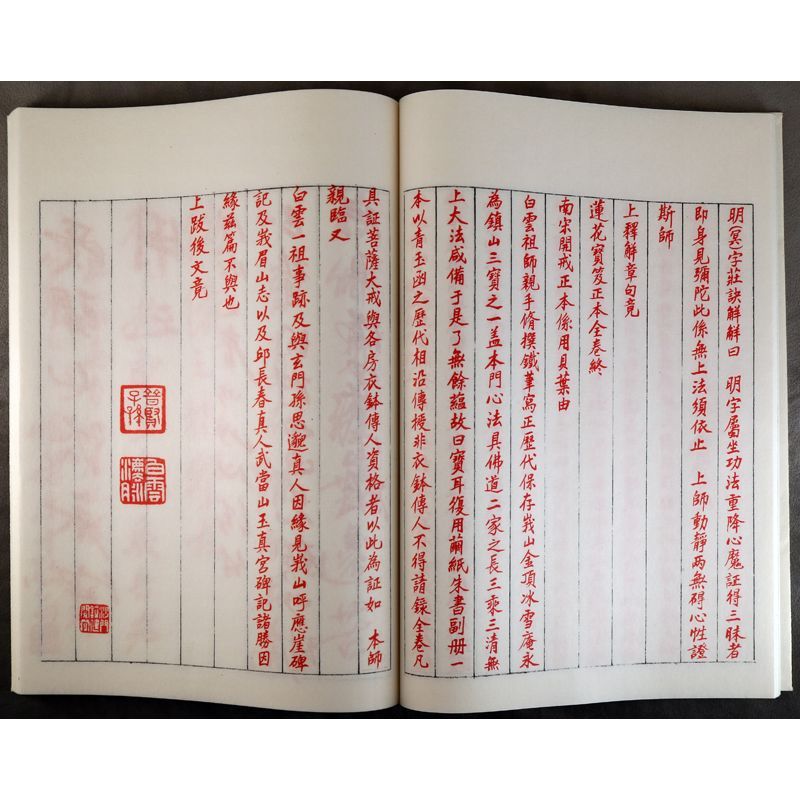 明(冥)字莊訣解解曰　明字屬坐功法重降心魔証得三昧者
即身見彌陀此係無上法須依止　上師動靜两無碍心性證
斯師
上釋解章句竟
蓮花寶笈正本全卷終
南宋開戒正本係用貝葉由
白雲祖師親手脩撰鐵筆寫正歷代保存峩山金頂冰雪庵永
為鎮山三寶之一盖本門心法具佛道二家之長三乘三清無
上大法咸備于是了無餘蕴故曰寶耳復用繭紙朱書副册一
本以青玉函之歷代相沿傳授非衣鉢傳人不得請錄全卷凡
具証菩薩大戒與各房衣鉢傳人資格者以此為証如　本師
親臨又
白雲一祖事跡及與玄門孫思邈真人因緣見峩山呼應崖碑
記及峩眉山志以及邱長春真人武當山玉真宮碑記諸勝因
緣兹篇不與也
上跋後文竟
普賢子孫